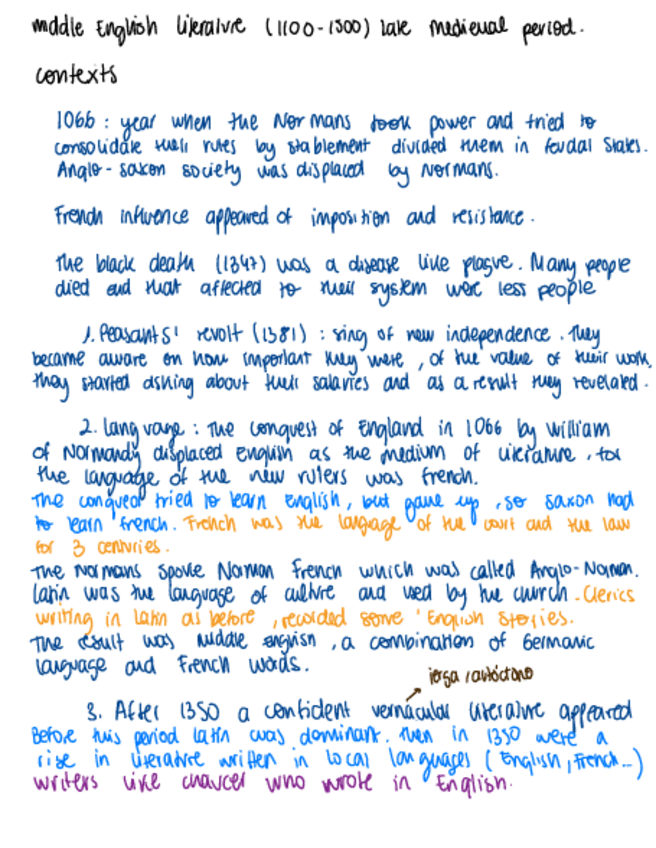 mddle English literature (1100-1500) late medieval period.
contexts
1066 : year when the Normans took power and tried to
consolidate their rules by stablement divided them in feudal states.
Anglo-saxon society was displaced by Normans.
French influence appeared of imposition and resistance.
The black death (1347) was a disease like plague. Many people
died and that affected to their system were less people
1. Peasants' revolt (1381) : sing of new independence. They
became aware on how important they were, of the value of their work,
they started asking about their salaries and as a result they revelated.
2. language : The conquest of England in 1066 by william
of Normandy displaced english as the medium of literature, for
the language of the new rulers was french.
The conqueror tried to learn English, but gave up, so saxon had
to learn french. French was the language of the court and the law
for 3 centuries.
The Normans spoke Norman French which was called Anglo-Norman.
latin was the language of culture and used by the church. Clerics
writing in latin as before, recorded some 'English Stories.
The result was middle english, a combination of Germanic
language and French words.
jerga / autóctono
3. After 1350 a confident vernacular literature appeared
Before this period latin was dominant. then in 1350 were a
rise in literature written in local languages (English, French...)
writers like chaucer who wrote in English.